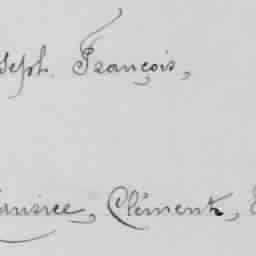 seph François,
aurice, Clément, E